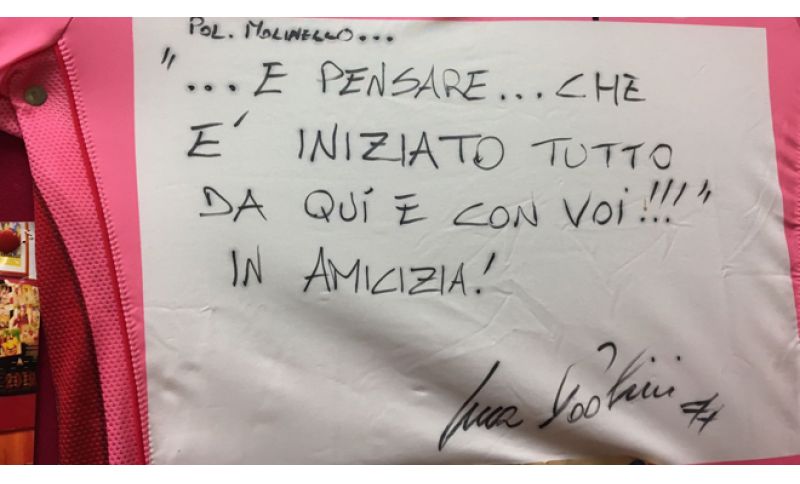 POL. MOLINELLO...
"...E PENSARE...CHE
E' INIZIATO TUTTO
DA QUÍ E CON VOI!!!"
IN AMICIZIA!
Luca